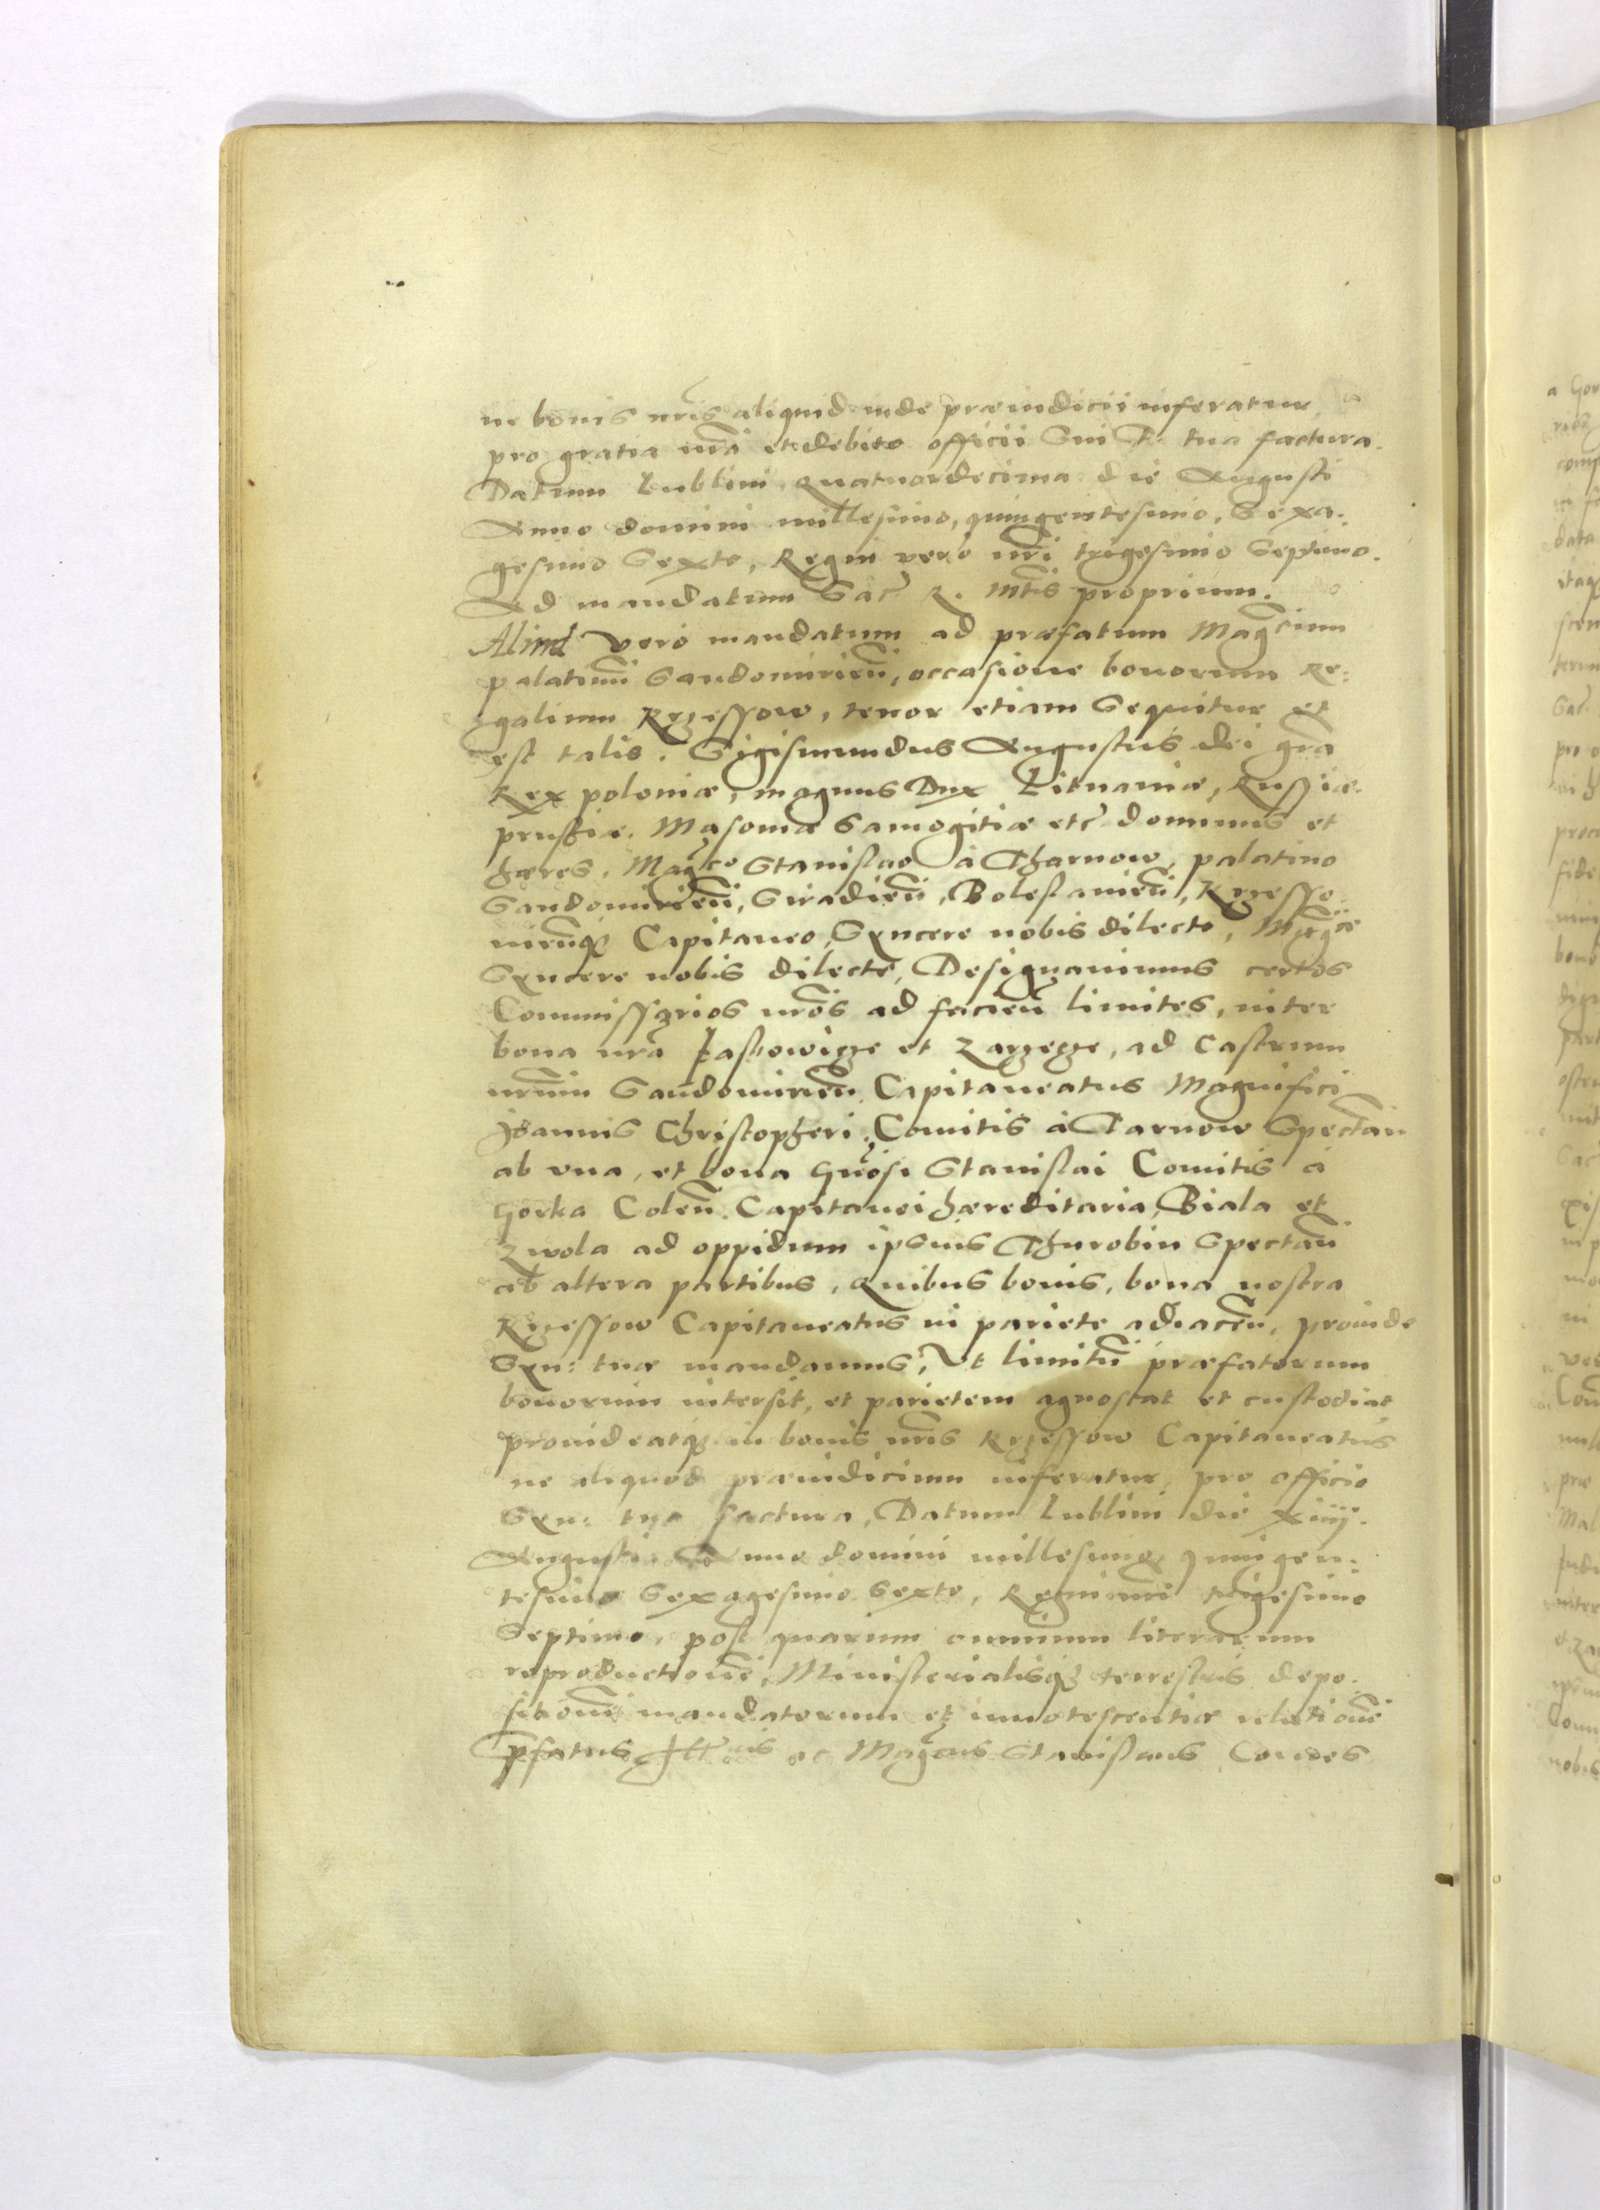 ne bonis nris aliquid inde præiudicii inferatur
pro gratia nra et debito officii Sui S. tua factura.
Datum Lublini quatuordecima die Augusti
Anno domini millesimo, quingentesimo, Sexa-
gesimo Sexto, Regni vero nri trigesimo Septimo.
Ad mandatum Sac R. Mtis proprium.
Aliud vero mandatum ad præfatum Magcum
palatinū Sandomirien̄, occasione bonorum Re:
galium Krzessow, tenor etiam Sequitur et
est talis. Sigismundus Augustus dei gra
Rex poloniæ, magnus Dux Lituaniæ, Russiæ.
prussiæ. Masoniæ Samogitiæ etc dominus et
hæres, Magco Stanislao à Tharnow, palatino
Sandomirien̄, Siradien̄, Bolestauien̄, Krzesso-
uien̄q₃ Capitaneo, Syncere nobis dilecto, Magce
Syncere nobis dilecte, Designauimus certos
Commissarios nros ad facien̄ limites, inter
bona nra Jastkowicze et Zarzecze, ad Castrum
nrum Sandomirien̄ Capitaneatus Magnifici
Joannis Christopheri Comitis à Tarnow Spectan̄
ab vna, et bona Gnosi Stanislai Comitis à
Gorka Colen̄ Capitanei hæreditaria, Biala et
Zwola ad oppidum ipsius Thurobin Spectan̄
ab altera partibus, Quibus bonis, bona nostra
Krzessow Capitaneatus in pariete adiacen̄, proinde
Syn: tuæ mandamus, Vt limitū præfatorum
bonorum intersit, et parietem agnoscat et custodiat
prouideatq₃ in bonis nris Krzessow Capitaneatus
ne aliquod præiudicium inferatur, pro officio
Syn: tua factura, Datum Lublini die xiiij.
Augusti Anno domini millesimo quingen-
tesimo Sexagesimo Sexto, Regni nri trigesimo
Septimo, post quarum omnium literarum
reproductionē, Ministerialisq₃ terrestris depo-
sitionē mandatorum et innotescentiæ relationē
pfatus Illris ac Magcus Stanislaus Comes